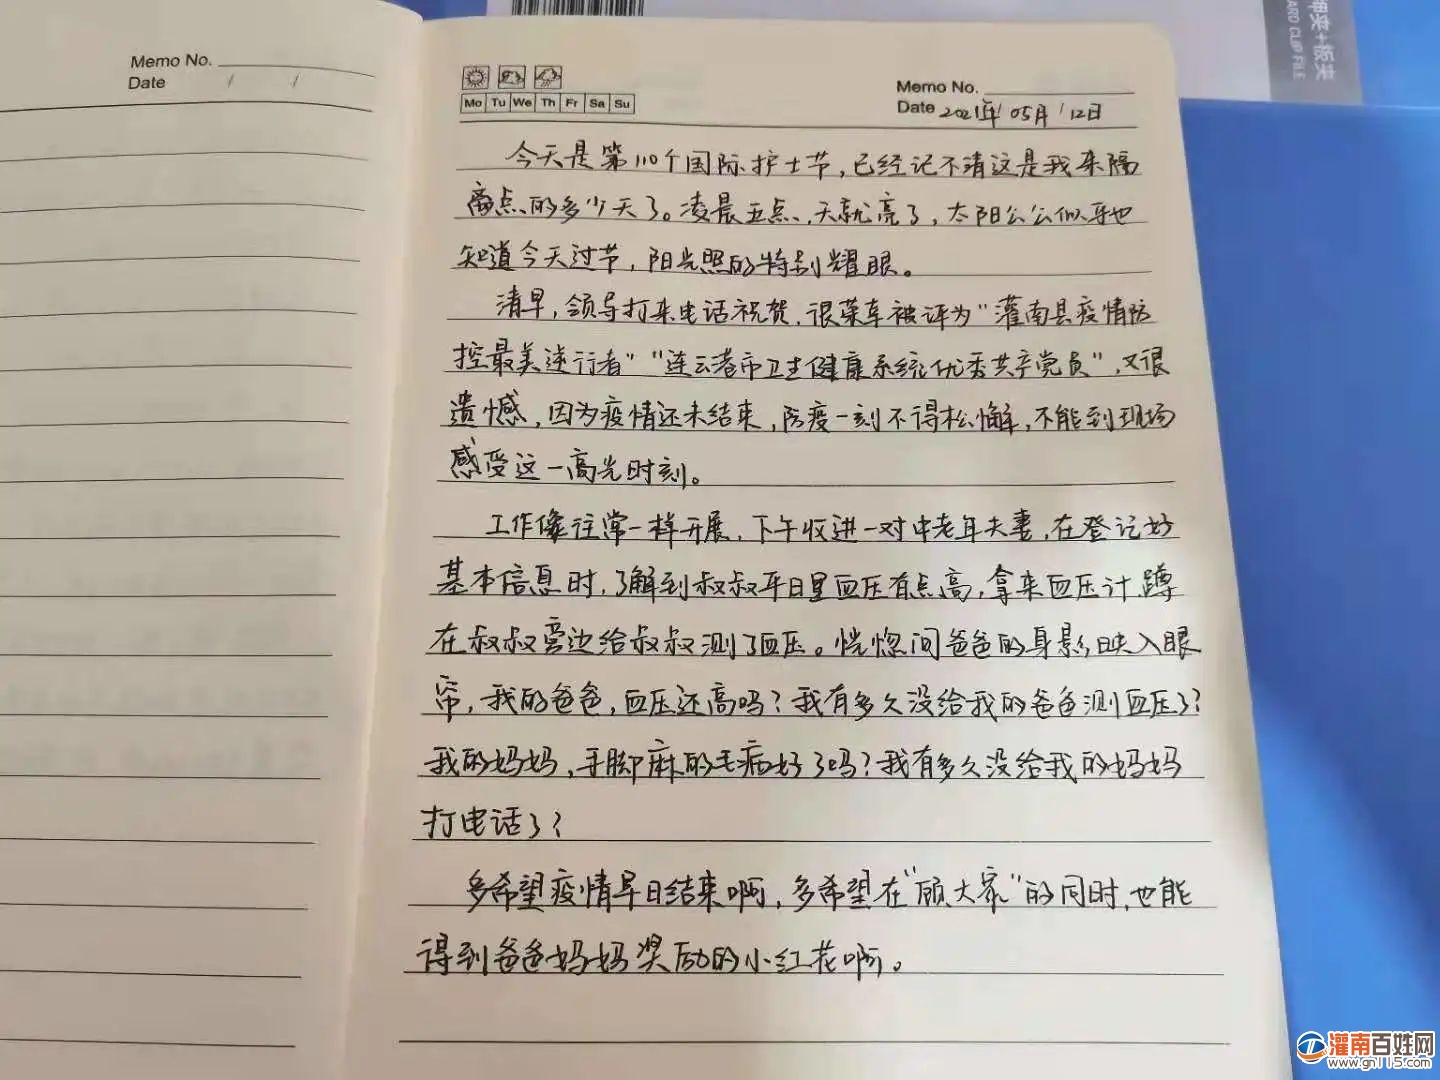 Memo No.
Date / /
Mo Tu We Th Fr Sa Su
Memo No.
Date 2021年 05月 12日
今天是第110个国际护士节,已经记不清这是我来隔
离点的多少天了。凌晨五点,天就亮了,太阳公公似乎也
知道今天过节,阳光照的特别耀眼。
清早,领导打来电话祝贺,很荣幸被评为“灌南县疫情防
控最美逆行者”“连云港市卫生健康系统优秀共产党员”,又很
遗憾,因为疫情还未结束,防疫一刻不得松懈,不能到现场
感受这一高光时刻。
工作像往常一样开展,下午收进一对中老年夫妻,在登记好
基本信息时,了解到叔叔平日里血压有点高,拿来血压计蹲
在叔叔旁边给叔叔测了血压。恍惚间爸爸的身影映入眼
帘,我的爸爸,血压还高吗?我有多久没给我的爸爸测血压了?
我的妈妈,手脚麻的毛病好了吗?我有多久没给我的妈妈
打电话了?
多希望疫情早日结束啊,多希望在“顾大家”的同时,也能
得到爸爸妈妈奖励的小红花啊。
押夹+板夹
ARD CLIP FILE
灌南百姓网
www.gn115.com